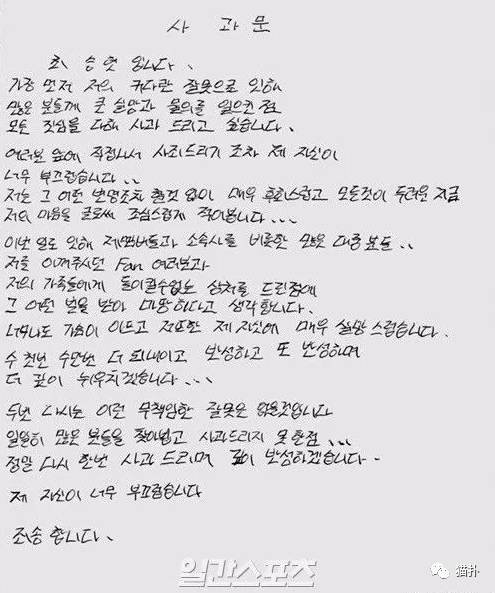 사 과 문
최 승현 입니다.
가장 먼저 저의 커다란 잘못으로 인해
많은 분들께 큰 실망과 물의를 일으킨 점
모든 진심을 다해 사과 드리고 싶습니다.
여러분 앞에 직접나서 사죄드리기 조차 제 자신이
너무 부끄럽습니다..
저는 그 어떤 변명조차 할것 없이 매우 후회스럽고 모든것이 두려운 지금
저의 마음을 글로써 조심스럽게 적어봅니다...
이번 일로 인해 제멤버들과 소속사를 비롯한 많은 대중 분들..
저를 아껴주시던 Fan 여러분과
저의 가족들에게 돌이킬수없는 상처를 드린점에
그 어떤 벌을 받아 마땅하다고 생각합니다.
너무나도 가슴이 아프고 저조한 제 자신에 매우 실망 스럽습니다.
수 천번 수만번 더 되내이고 반성하고 또 반성하며
더 깊이 뉘우치겠습니다...
두번 다시는 이런 무책임한 잘못은 없을것입니다
일일히 많은 분들을 찾아뵙고 사과드리지 못한점...
정말 다시 한번 사과 드리며 깊이 반성하겠습니다.
제 자신이 너무 부끄럽습니다
죄송 합니다.
일간스포츠
猫扑